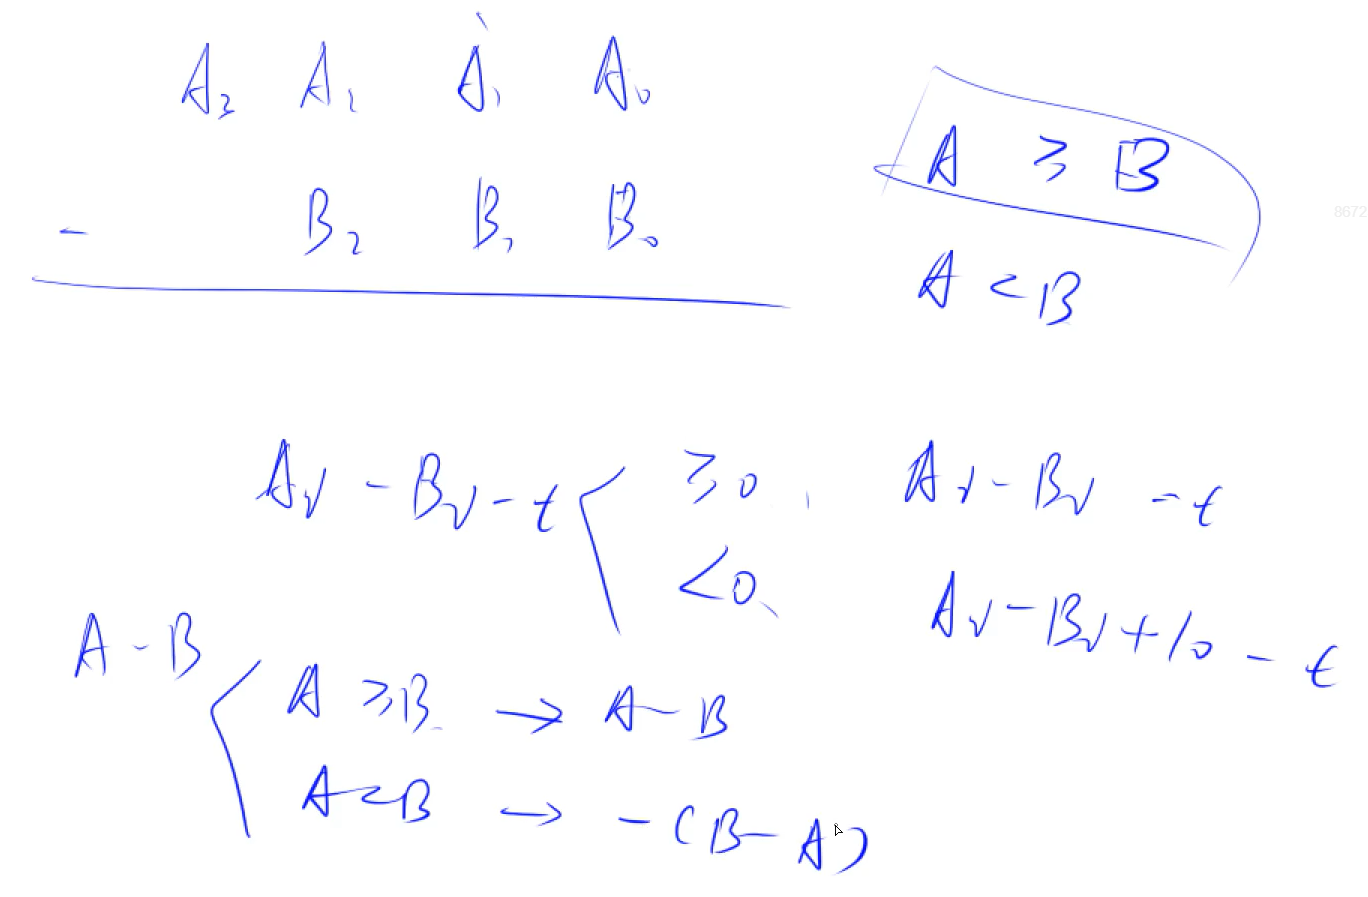 A₃ A₂ A₁ A₀
- B₂ B₁ B₀
A ≥ B
A < B
8672
Aᵢ - Bᵢ - t
≥0, Aᵢ - Bᵢ - t
<0, Aᵢ - Bᵢ + 10 - t
A - B
A ≥ B → A - B
A < B → -(B - A)